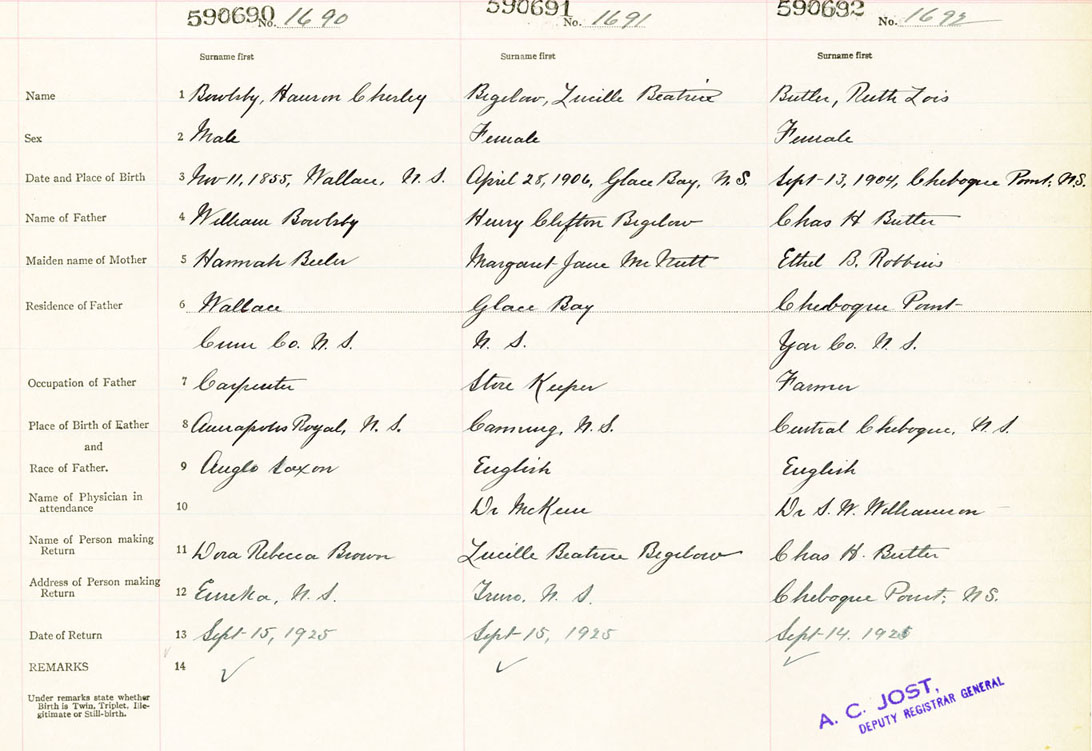 590690 No. 1690 590691 No. 1691 590692 No. 1692
Surname first Surname first Surname first
Name 1 Bowlsby, Hanson Chesley Bigelow, Lucille Beatrice Butler, Ruth Lois
Sex 2 Male Female Female
Date and Place of Birth 3 Nov 11, 1855, Wallace, N.S. April 28, 1906, Glace Bay, N.S. Sept-13, 1904, Chebogue Point, N.S.
Name of Father 4 William Bowlsby Henry Clifton Bigelow Chas H Butler
Maiden name of Mother 5 Hannah Beeler Margaret Jane McNutt Ethel B. Robbins
Residence of Father 6 Wallace Glace Bay Chebogue Point
Cum Co. N.S. N.S. Yar Co. N.S.
Occupation of Father 7 Carpenter Store Keeper Farmer
Place of Birth of Father 8 Annapolis Royal, N.S. Canning, N.S. Central Chebogue, N.S.
and
Race of Father. 9 Anglo Saxon English English
Name of Physician in
attendance 10 Dr McKeen Dr S. W. Williamson
Name of Person making
Return 11 Dora Rebecca Brown Lucille Beatrice Bigelow Chas H. Butler
Address of Person making
Return 12 Eureka, N.S. Truro, N.S. Chebogue Point, NS.
Date of Return 13 Sept-15, 1925 Sept-15, 1925 Sept-14. 1925
REMARKS 14
Under remarks state whether
Birth is Twin, Triplet, Ille-
gitimate or Still-birth.
A. C. JOST,
DEPUTY REGISTRAR GENERAL